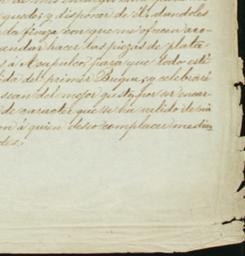 quedo; y disponer de V. dandoles
da fineza con que me ofrecen aco
mandar hacer las piezas de plata
s á Acapulco, para que todo esté
da del primer Buque; y celebraré
sean del mejor gusto, por ser encar
de caracter que se ha valido de mi
on á quien deseo complacer median
dez.